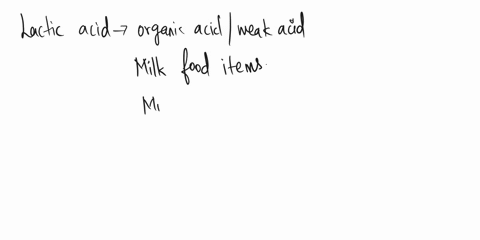 Lactic acid → organic acid / weak acid
Milk food items.